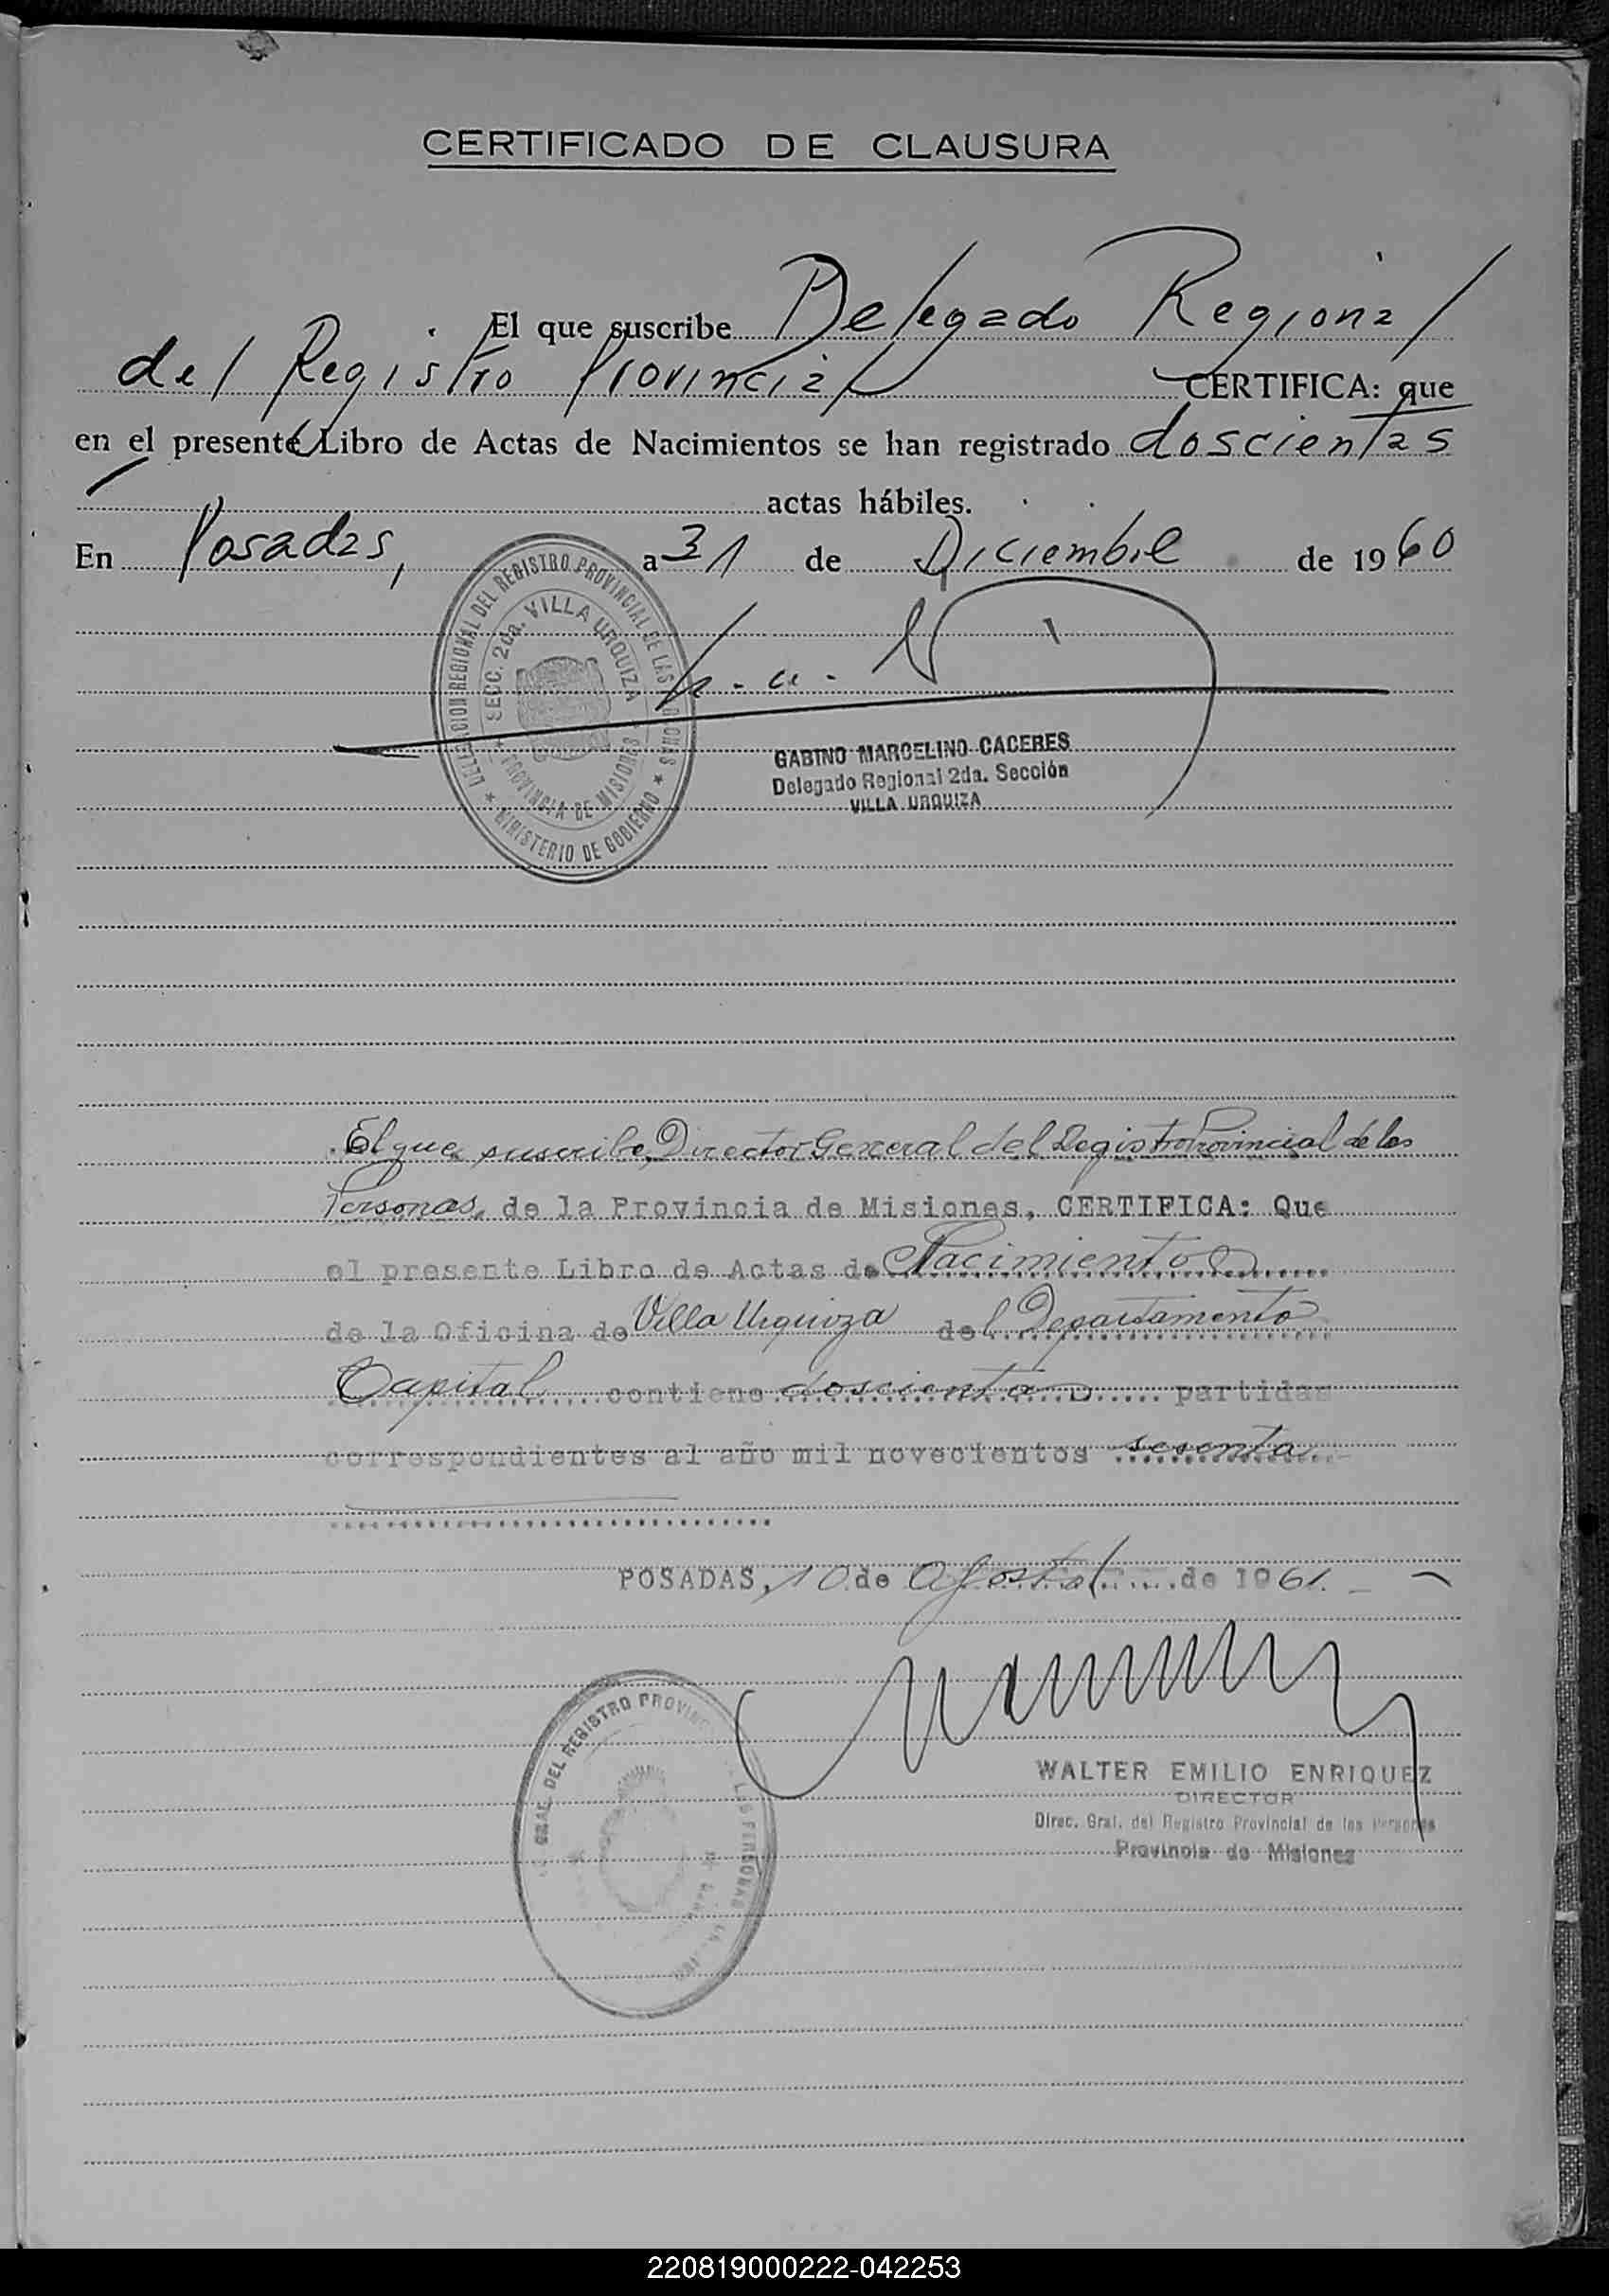 CERTIFICADO DE CLAUSURA
El que suscribe Delegado Regional
del Registro Provincial CERTIFICA: que
en el presente Libro de Actas de Nacimientos se han registrado doscientas
actas hábiles.
En Posadas, a 31 de Diciembre de 1960
DELEGACION REGIONAL DEL REGISTRO PROVINCIAL DE LAS PERSONAS
SECC. 2da. VILLA URQUIZA
PROVINCIA DE MISIONES
MINISTERIO DE GOBIERNO
GABINO MARCELINO CACERES
Delegado Regional 2da. Sección
VILLA URQUIZA
El que suscribe, Director General del Registro Provincial de las
Personas, de la Provincia de Misiones, CERTIFICA: Que
el presente Libro de Actas de Nacimientos
de la Oficina de Villa Urquiza del Departamento
Capital contiene doscientas partidas
correspondientes al año mil novecientos sesenta
POSADAS, 10 de Agosto de 1961.
GRAL. DEL REGISTRO PROVINC LAS PERSONAS
WALTER EMILIO ENRIQUEZ
DIRECTOR
Direc. Gral. del Registro Provincial de las Personas
Provincia de Misiones
220819000222-042253